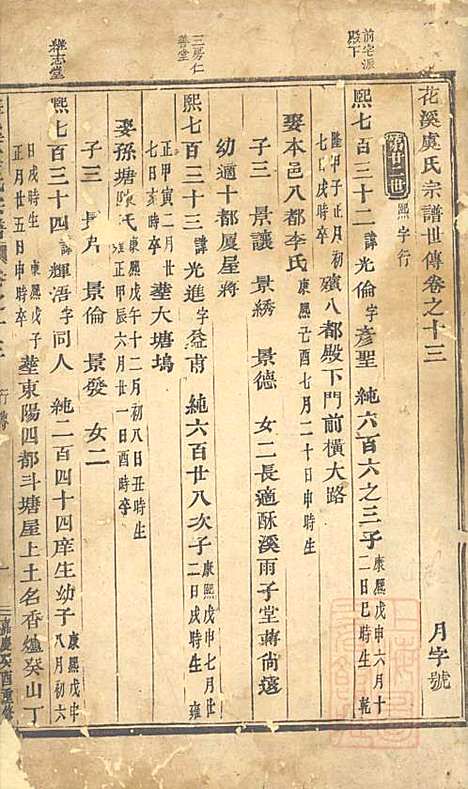 花溪虞氏宗譜世傳卷之十三
月字號
第廿二世 熙字行
前宅派
殿下
熙七百三十二 諱光倫字彥聖 純六百六之三子 康熙戊申六月十二日巳時生 乾
隆甲子正月初七日戌時卒 殯八都殿下門前橫大路
娶本邑八都李氏 康熙己酉七月二十日申時生
子三 景讓 景綉 景德 女二長適酥溪雨子堂蔣尚遠
幼適十都厦屋蔣
三房仁
善堂
熙七百三十三 諱光進字益甫 純六百廿八次子 康熙戊申七月廿二日戌時生 雍
正甲寅二月廿七日亥時卒 塟大塘塢
娶孫塘 氏 康熙戊午十二月初八日丑時生 雍正甲辰六月廿一日酉時卒
子三 景倫 景發 女二
雍志堂
熙七百三十四 諱輝浯字同人 純二百四十四庠生幼子 康熙戊子八月初六
日戌時生 正月廿五日申時卒 塟東陽四都斗塘屋上土名香爐癸山丁
嘉慶 酉重修